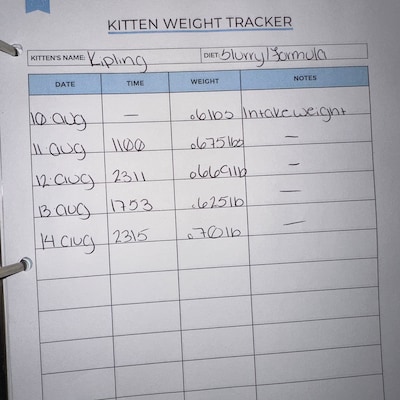 KITTEN WEIGHT TRACKER
KITTEN'S NAME: Kipling DIET: Slurry/Formula
DATE TIME WEIGHT NOTES
10 aug — .6lbs Intake weight
11 aug 1100 .675lbs —
12 aug 2311 .6669lb —
13 aug 1753 .625lb —
14 aug 2315 .70lb —